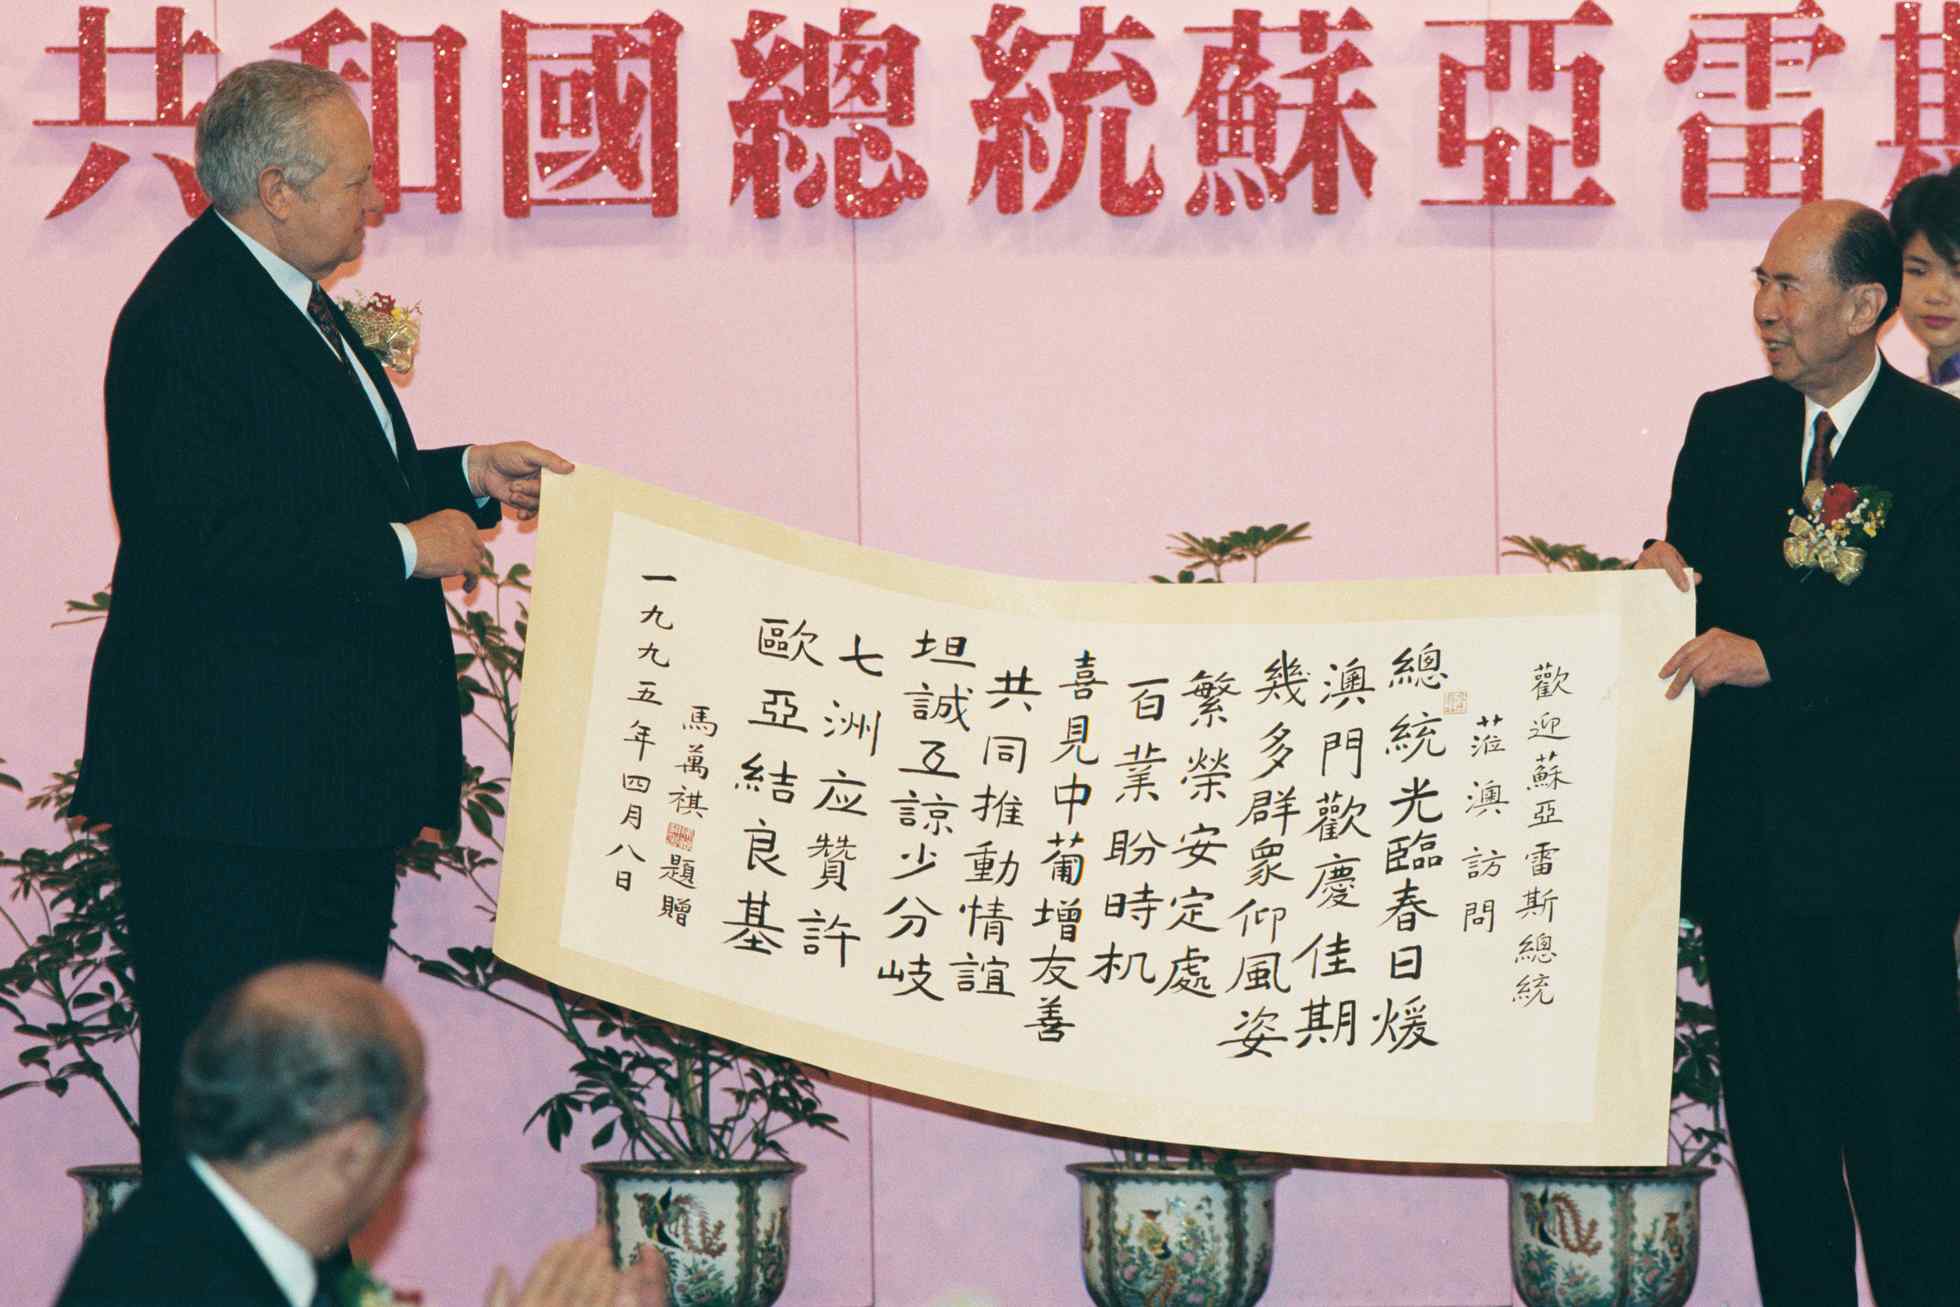 共和國總統蘇亞雷斯
歡迎蘇亞雷斯總統
蒞澳訪問
總統光臨春日煖
澳門歡慶佳期
幾多群衆仰風姿
繁榮安定處
百業盼時机
喜見中葡增友善
共同推動情誼
坦誠互諒少分岐
七洲应贊許
歐亞結良基
馬萬祺題贈
一九九五年四月八日